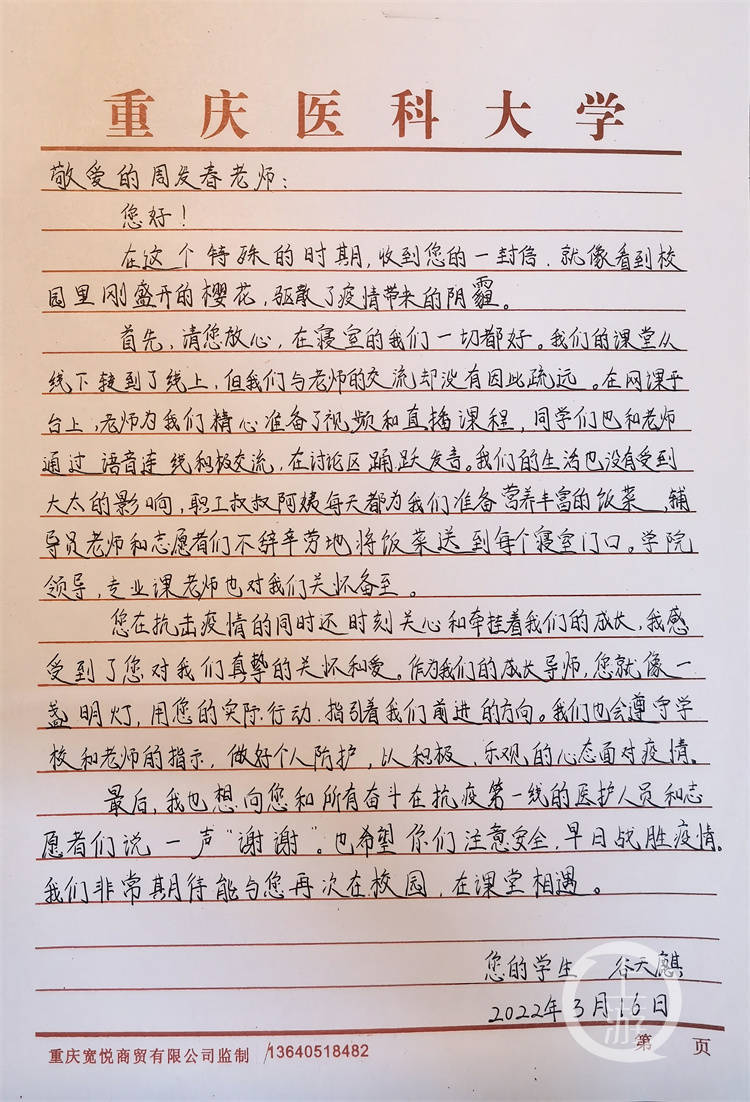 重庆医科大学
敬爱的周发春老师：
您好！
在这个特殊的时期，收到您的一封信，就像看到校
园里刚盛开的樱花，驱散了疫情带来的阴霾。
首先，请您放心，在寝室的我们一切都好。我们的课堂从
线下转到了线上，但我们与老师的交流却没有因此疏远。在网课平
台上，老师为我们精心准备了视频和直播课程，同学们也和老师
通过语音连线积极交流，在讨论区踊跃发言。我们的生活也没有受到
太大的影响，职工叔叔阿姨每天都为我们准备营养丰富的饭菜，辅
导员老师和志愿者们不辞辛劳地将饭菜送到每个寝室门口。学院
领导，专业课老师也对我们关怀备至。
您在抗击疫情的同时还时刻关心和牵挂着我们的成长，我感
受到了您对我们真挚的关怀和爱。作为我们的成长导师，您就像一
盏明灯，用您的实际行动指引着我们前进的方向。我们也会遵守学
校和老师的指示，做好个人防护，以积极、乐观的心态面对疫情。
最后，我也想向您和所有奋斗在抗疫第一线的医护人员和志
愿者们说一声“谢谢”。也希望你们注意安全，早日战胜疫情。
我们非常期待能与您再次在校园，在课堂相遇。
您的学生 谷天麒
2022年3月16日
重庆宽悦商贸有限公司监制 /13640518482
第 页
上游